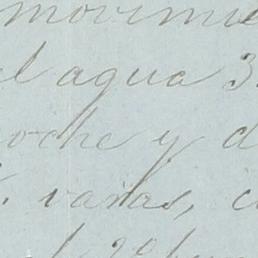 movimie
el agua 3.
oche y d
varas, c